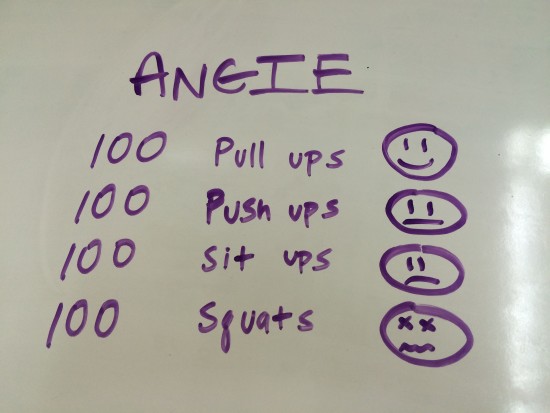 ANGIE
100 Pull ups
100 Push ups
100 sit ups
100 Squats